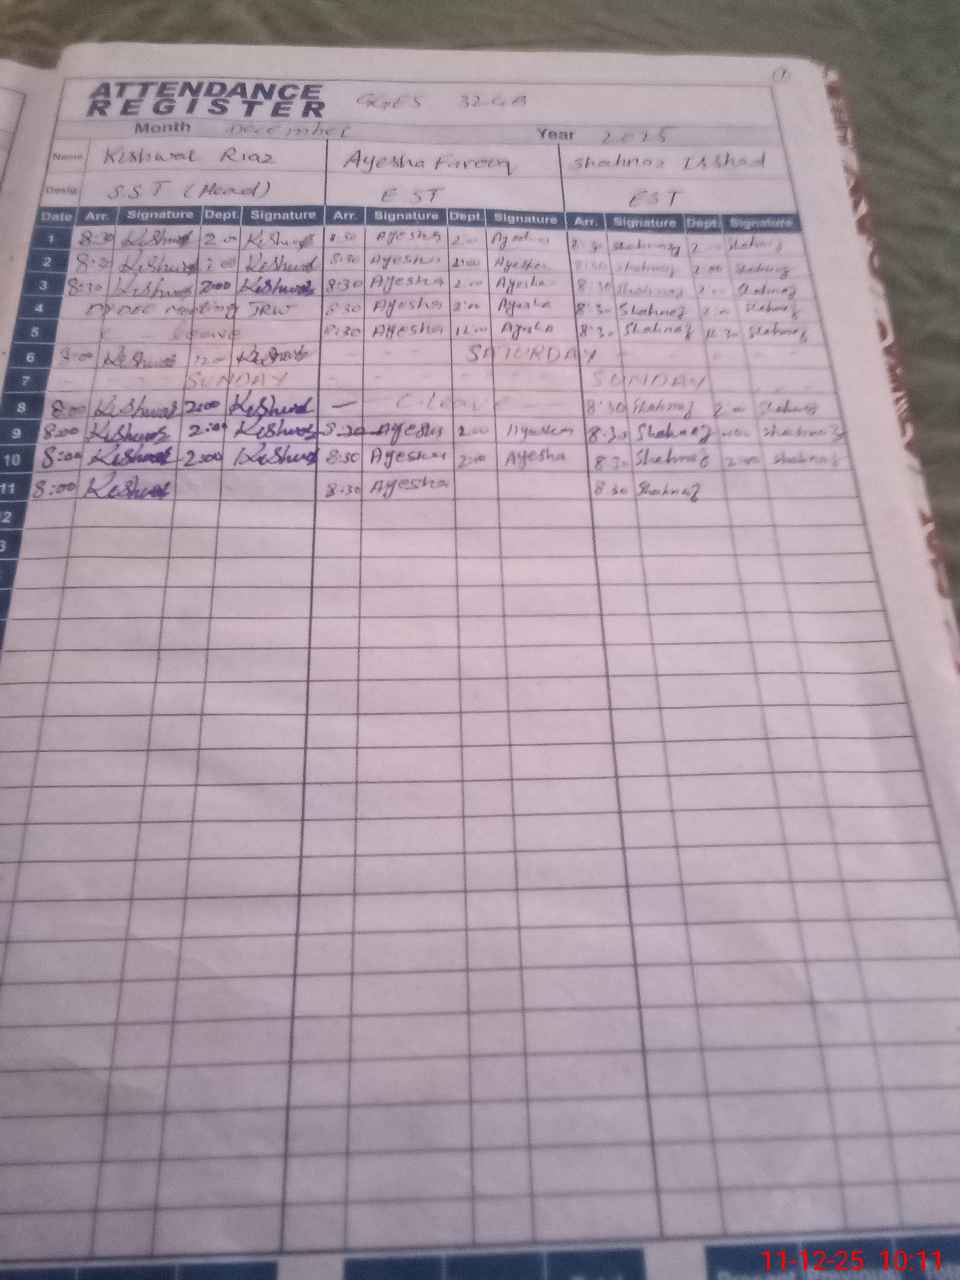 ATTENDANCE
REGISTER
GGES 32GB
Month December Year 2025
Name Kishwar Riaz Ayesha Fareeq Shahnaz Irshad
Desig S.S.T (Head) EST EST
Date Arr. Signature Dept. Signature Arr. Signature Dept. Signature Arr. Signature Dept. Signature
1 8:30 Kishwar 2:00 Kishwar 8:30 Ayesha 2:00 Ayesha 8:30 Shahnaz 2:00 Shahnaz
2 8:30 Kishwar 2:00 Kishwar 8:30 Ayesha 2:00 Ayesha 8:30 Shahnaz 2:00 Shahnaz
3 8:30 Kishwar 2:00 Kishwar 8:30 Ayesha 2:00 Ayesha 8:30 Shahnaz 2:00 Shahnaz
4 meeting JRW 8:30 Ayesha 2:00 Ayesha 8:30 Shahnaz 2:00 Shahnaz
5 leave 8:30 Ayesha 12:00 Ayesha 8:30 Shahnaz 12:30 Shahnaz
6 9:00 Kishwar 12:00 Kishwar SATURDAY
7 SUNDAY SUNDAY
8 8:00 Kishwar 2:00 Kishwar — C-leave 8:30 Shahnaz 2:00 Shahnaz
9 8:00 Kishwar 2:00 Kishwar 8:30 Ayesha 2:00 Ayesha 8:30 Shahnaz 2:00 Shahnaz
10 8:00 Kishwar 2:00 Kishwar 8:30 Ayesha 2:00 Ayesha 8:30 Shahnaz 2:00 Shahnaz
11 8:00 Kishwar 8:30 Ayesha 8:30 Shahnaz
11-12-25 10:11